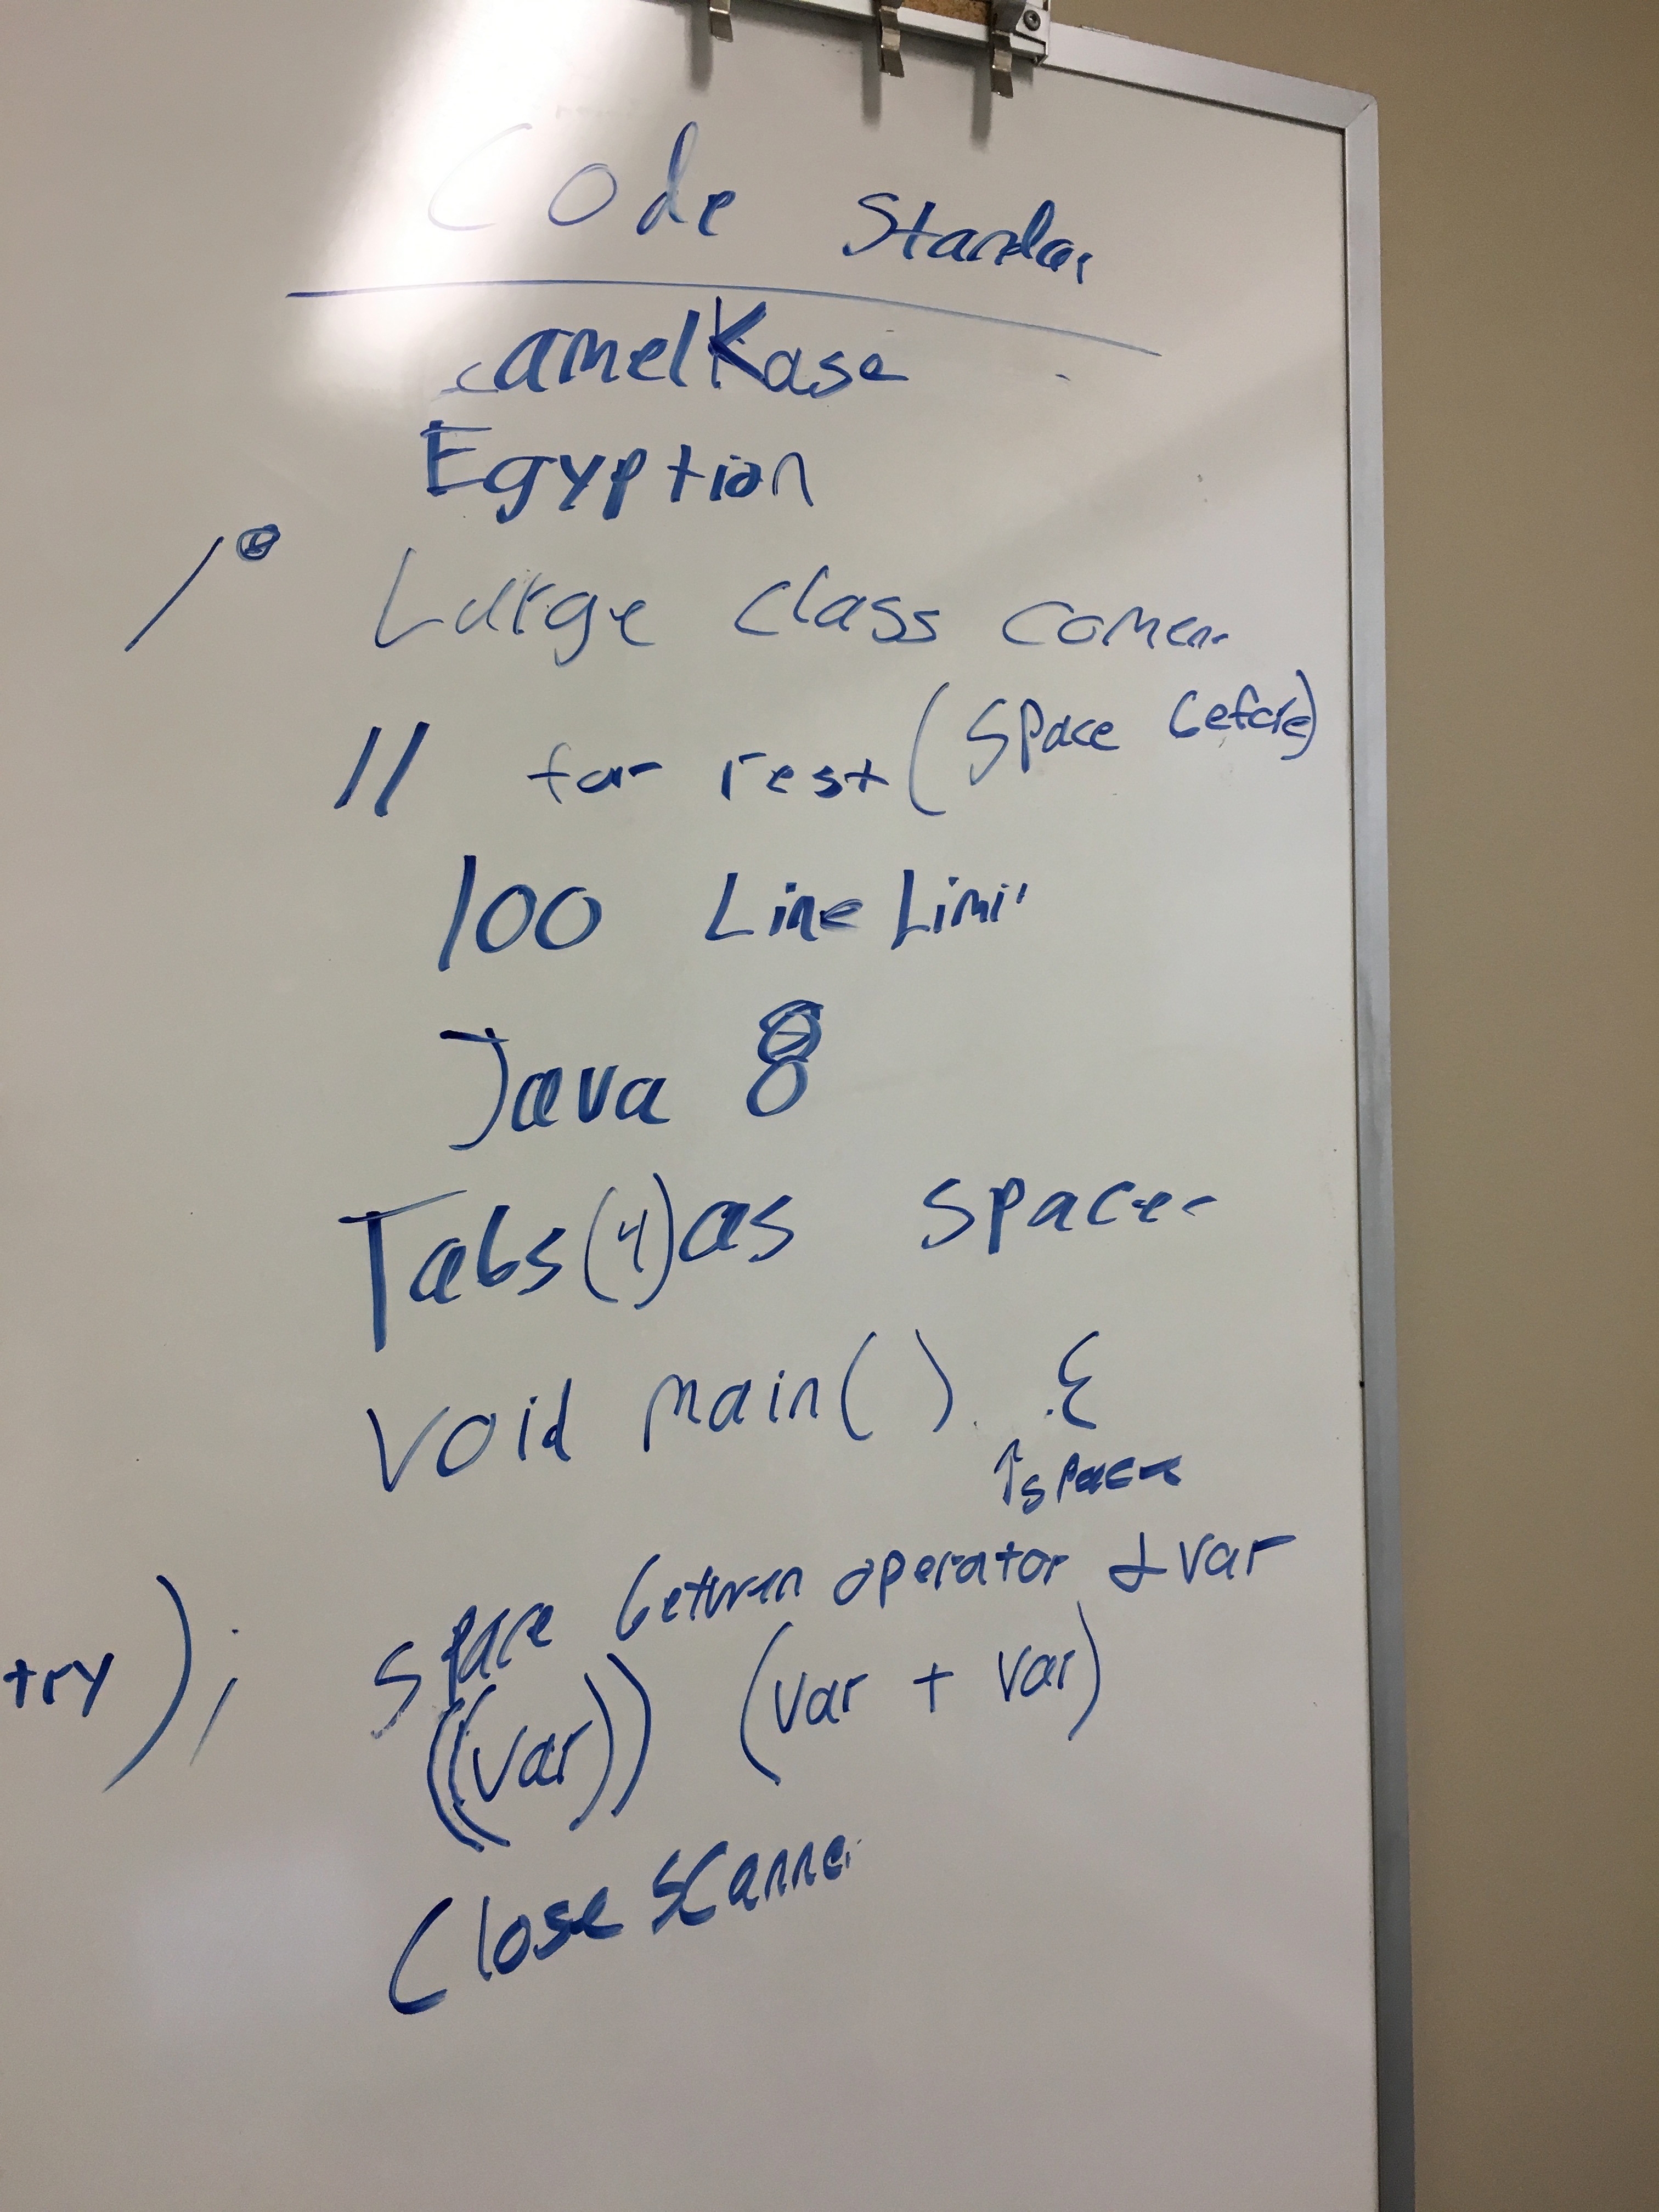 Code Standar
camelKase
Egyption
/* Large class comen
// for rest (space before)
100 Line Limi
Java 8
Tabs(4)as spaces
void main() {
↑space
space between operator & var
try); ((var)) (var + var)
Close Scanner